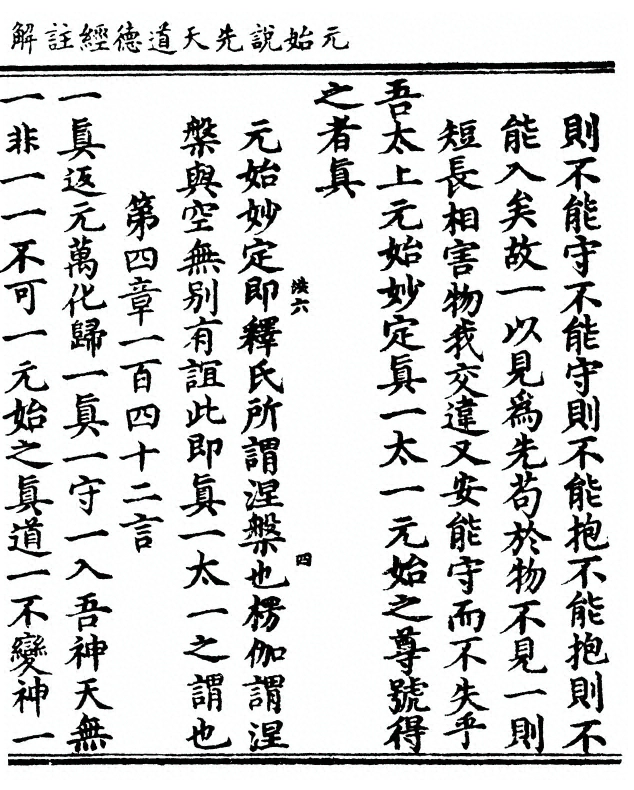 元始說先天道德經註解
則不能守不能守則不能抱不能抱則不
能入矣故一以見爲先苟於物不見一則
短長相害物我交違又安能守而不失乎
吾太上元始妙定眞一太一元始之尊號得
之者眞
六
四
元始妙定即釋氏所謂涅槃也楞伽謂涅
槃與空無別有誼此即眞一太一之謂也
第四章一百四十二言
一眞返元萬化歸一眞一守一入吾神天無
一非一一不可一元始之眞道一不變神一